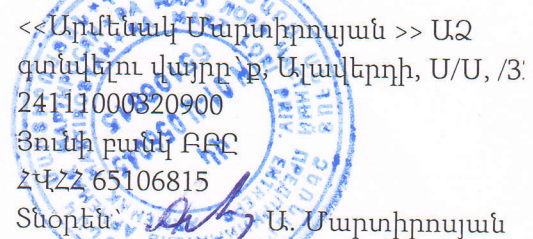 <<Արմենակ Մարտիրոսյան >> ԱՁ
գտնվելու վայրը՝ք, Ալավերդի, Ս/Ս, /3
24111000320900
Յունի բանկ ԲԲԸ
ՀՎՀՀ 65106815
Տնօրեն՝ Ա. Մարտիրոսյան